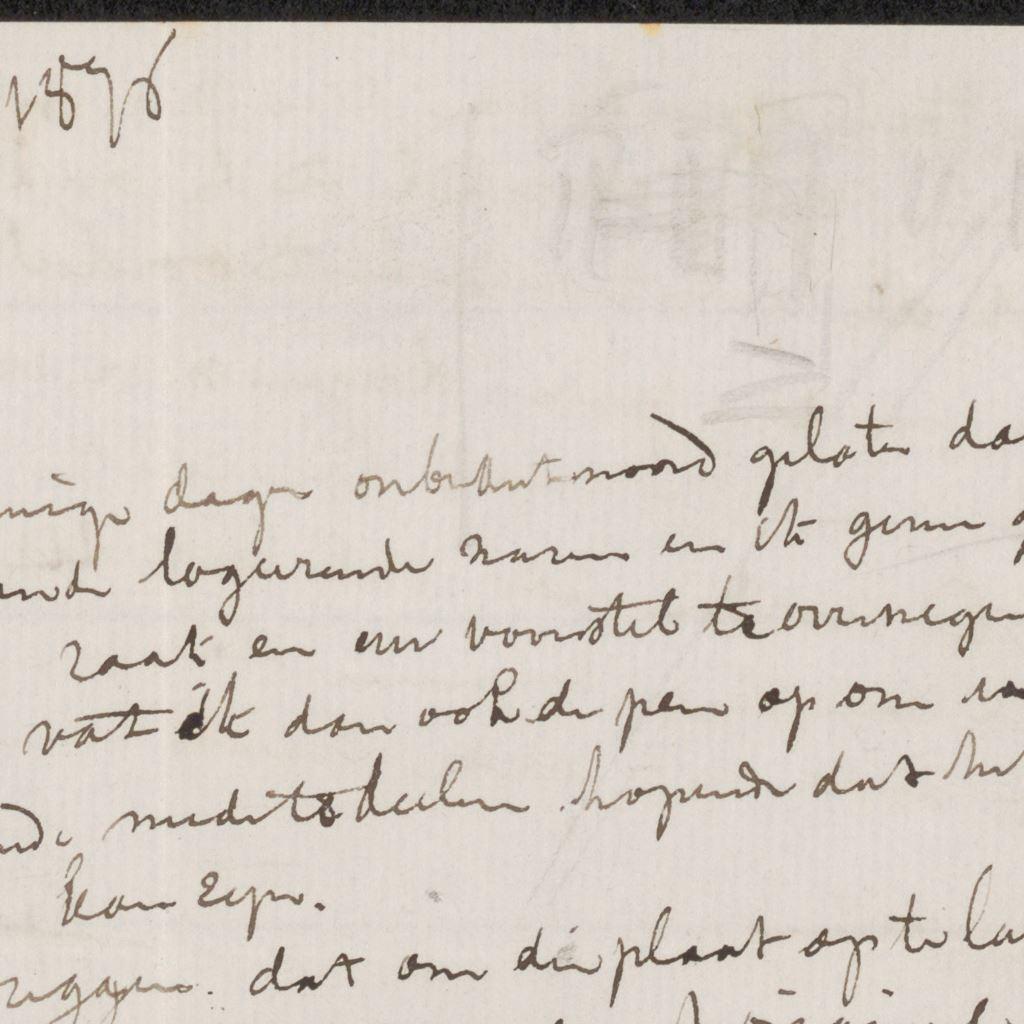 1876
enige dagen onbeantwoord gelaten da
ende logeerende waren en ik geene g
zaak en uw voorstel te overwegen
vat ik dan ook de pen op om u
ende medetedeelen hopende dat het
kan zijn.
zeggen. dat om die plaat op te la